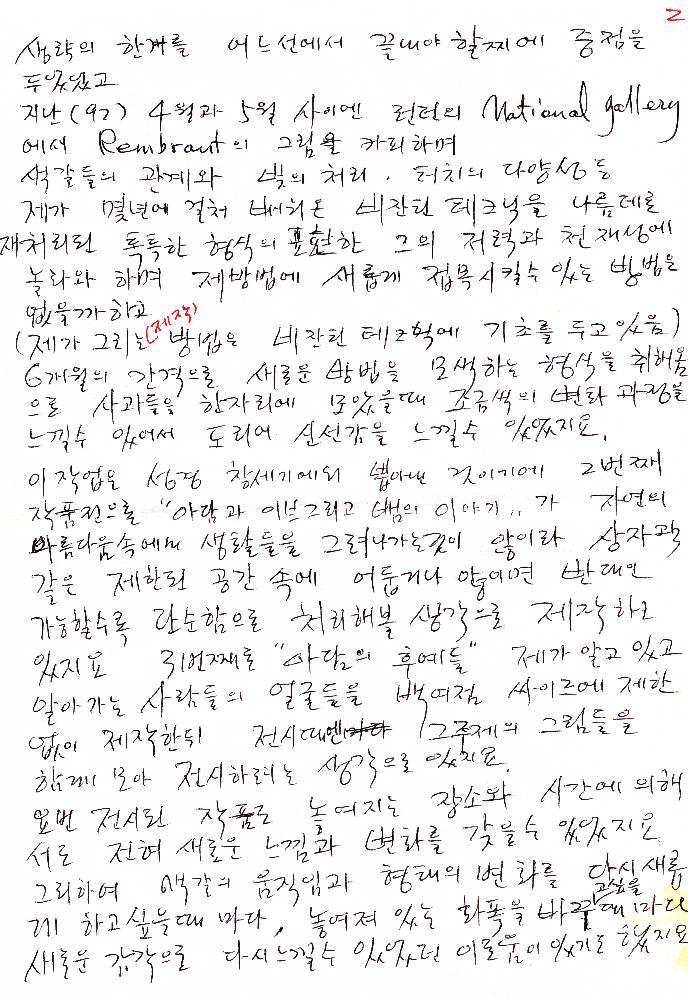 2
생략의 한계를 어느선에서 끝내야 할찌에 중점을
두었었고
지난(92) 4월과 5월 사이엔 런던의 National gallery
에서 Rembrant의 그림을 카피하며
색갈들의 관계와 빛의 처리. 터치의 다양성 등
제가 몇년에 걸쳐 배워온 비잔틴 테크닉을 나름데로
재처리된 톡특한 형식의 표현한 그의 저력과 천재성에
놀라와 하며 제방법에 새롭게 접목시킬수 있는 방법은
없을까 하고
(제가 그리는(제작) 방법은 비잔틴 테크닉에 기초를 두고 있음)
6개월의 간격으로 새로운 방법을 모색하는 형식을 취해옴
으로 사과들을 한자리에 모았을때 조금씩의 변화 과정을
느낄수 있어서 도리어 신선감을 느낄수 있었지요.
이작업은 성경 창세기에의 뽑아낸 것이기에 2번째
작품전으로 "아담과 이브그리고 뱀의 이야기"가 자연의
아름다움속에서 생활들을 그려나가는것이 않이라 상자곽
같은 제한된 공간 속에 어둡거나 않이면 반대인
가능할수록 단순함으로 처리해볼 생각으로 제작하고
있지요 3번째로 "아담의 후예들" 제가 알고 있고
알아가는 사람들의 얼굴들을 백여점 싸이즈에 제한
없이 제작한뒤 전시때엔 그주제의 그림들을
함께 모아 전시하려는 생각으로 있지요.
요번 전시된 작품도 놓여지는 장소와 시간에 의해
서로 전혀 새로운 느낌과 변화를 갖을수 있었지요
그리하여 색갈의 움직임과 형태의 변화를 다시 새롭
게 하고싶을때 마다, 놓여져 있는 화폭을 바꾸고싶을때 마다
새로운 감각으로 다시느낄수 있었던 이로움이 있기도 했지요